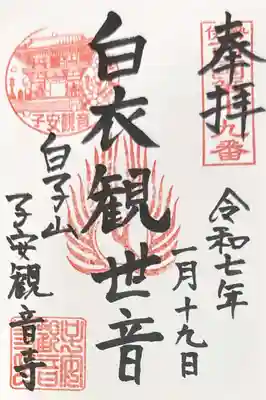 奉拝
令和七年
一月十九日
白衣観世音
白子山
子安観音寺
子安観音